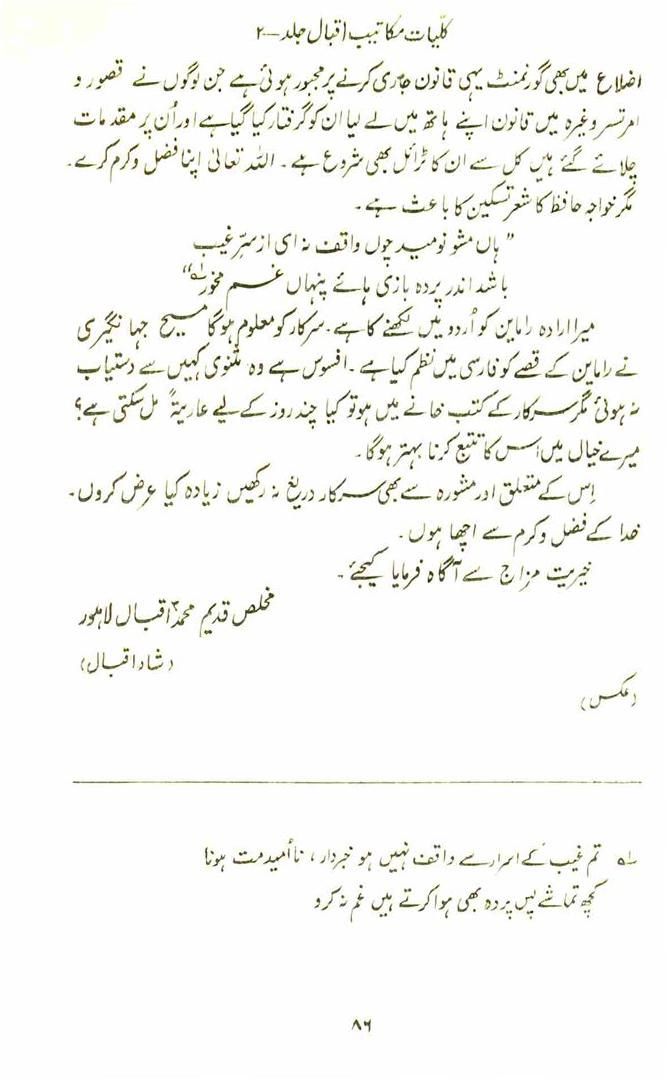 کلّیات مکاتیب اقبال جلد ۔ ۲
اضلاع میں بھی گورنمنٹ یہی قانون جاری کرنے پر مجبور ہوئی ہے جن لوگوں نے قصور و
امرتسر وغیرہ میں قانون اپنے ہاتھ میں لے لیا ان کو گرفتار کیا گیا ہے اور اُن پر مقدمات
چلائے گئے ہیں کل سے ان کا ٹرائل بھی شروع ہے ۔ اللہ تعالیٰ اپنا فضل وکرم کرے۔
مگر خواجہ حافظ کا شعر تسکین کا باعث ہے ۔
” ہاں مشو نومید چوں واقف نہ ای از سرِّ غیب
باشد اندر پردہ بازی ہائے پنہاں غم مخور“ لہ
میرا ارادہ راماین کو اُردو میں لکھنے کا ہے ۔ سرکار کو معلوم ہوگا مسیح جہانگیری
نے راماین کے قصے کو فارسی میں نظم کیا ہے ۔ افسوس ہے وہ مثنوی کہیں سے دستیاب
نہ ہوئی مگر سرکار کے کتب خانے میں ہو تو کیا چند روز کے لیے عاریتہً مل سکتی ہے؟
میرے خیال میں اس کا تتبع کرنا بہتر ہوگا ۔
اِس کے متعلق اور مشورہ سے بھی سرکار دریغ نہ رکھیں زیادہ کیا عرض کروں۔
خدا کے فضل وکرم سے اچھا ہوں ۔
خیریت مزاج سے آگاہ فرمایا کیجئے ۔
مخلص قدیم محمدؐ اقبال لاہور
(شاد اقبال)
(عکس)
لہ تم غیب کے اسرار سے واقف نہیں ہو خبردار، نا اُمید مت ہونا
کچھ تماشے پس پردہ بھی ہوا کرتے ہیں غم نہ کرو
۸۶